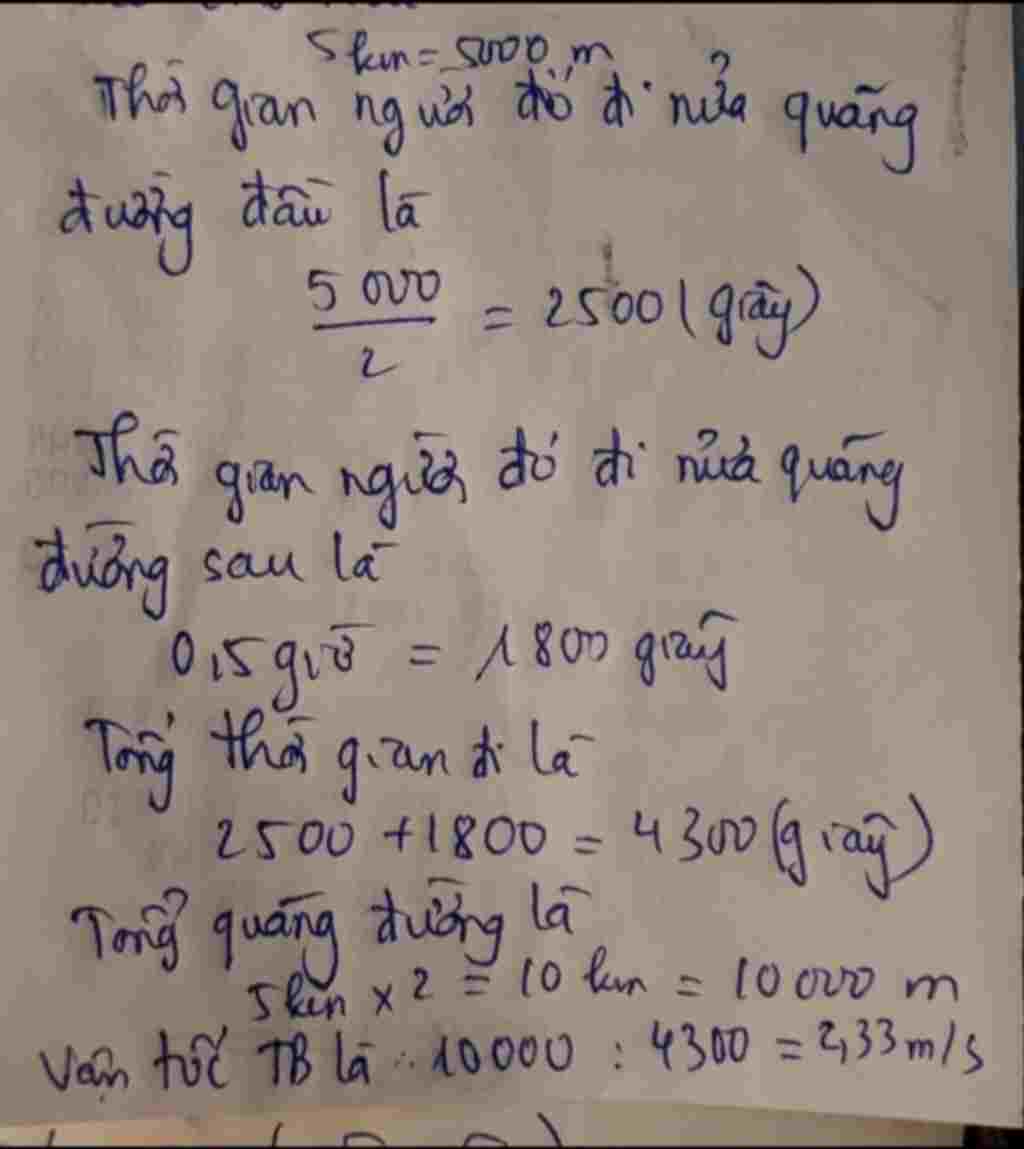 5km = 5000 m
Thời gian người đó đi nửa quãng
đường đầu là
5000
2
= 2500 (giây)
Thời gian người đó đi nửa quãng
đường sau là
0,5 giờ = 1800 giây
Tổng thời gian đi là
2500 + 1800 = 4300 (giây)
Tổng quãng đường là
5km x 2 = 10 km = 10000 m
Vận tốc TB là : 10000 : 4300 = 2,33 m/s